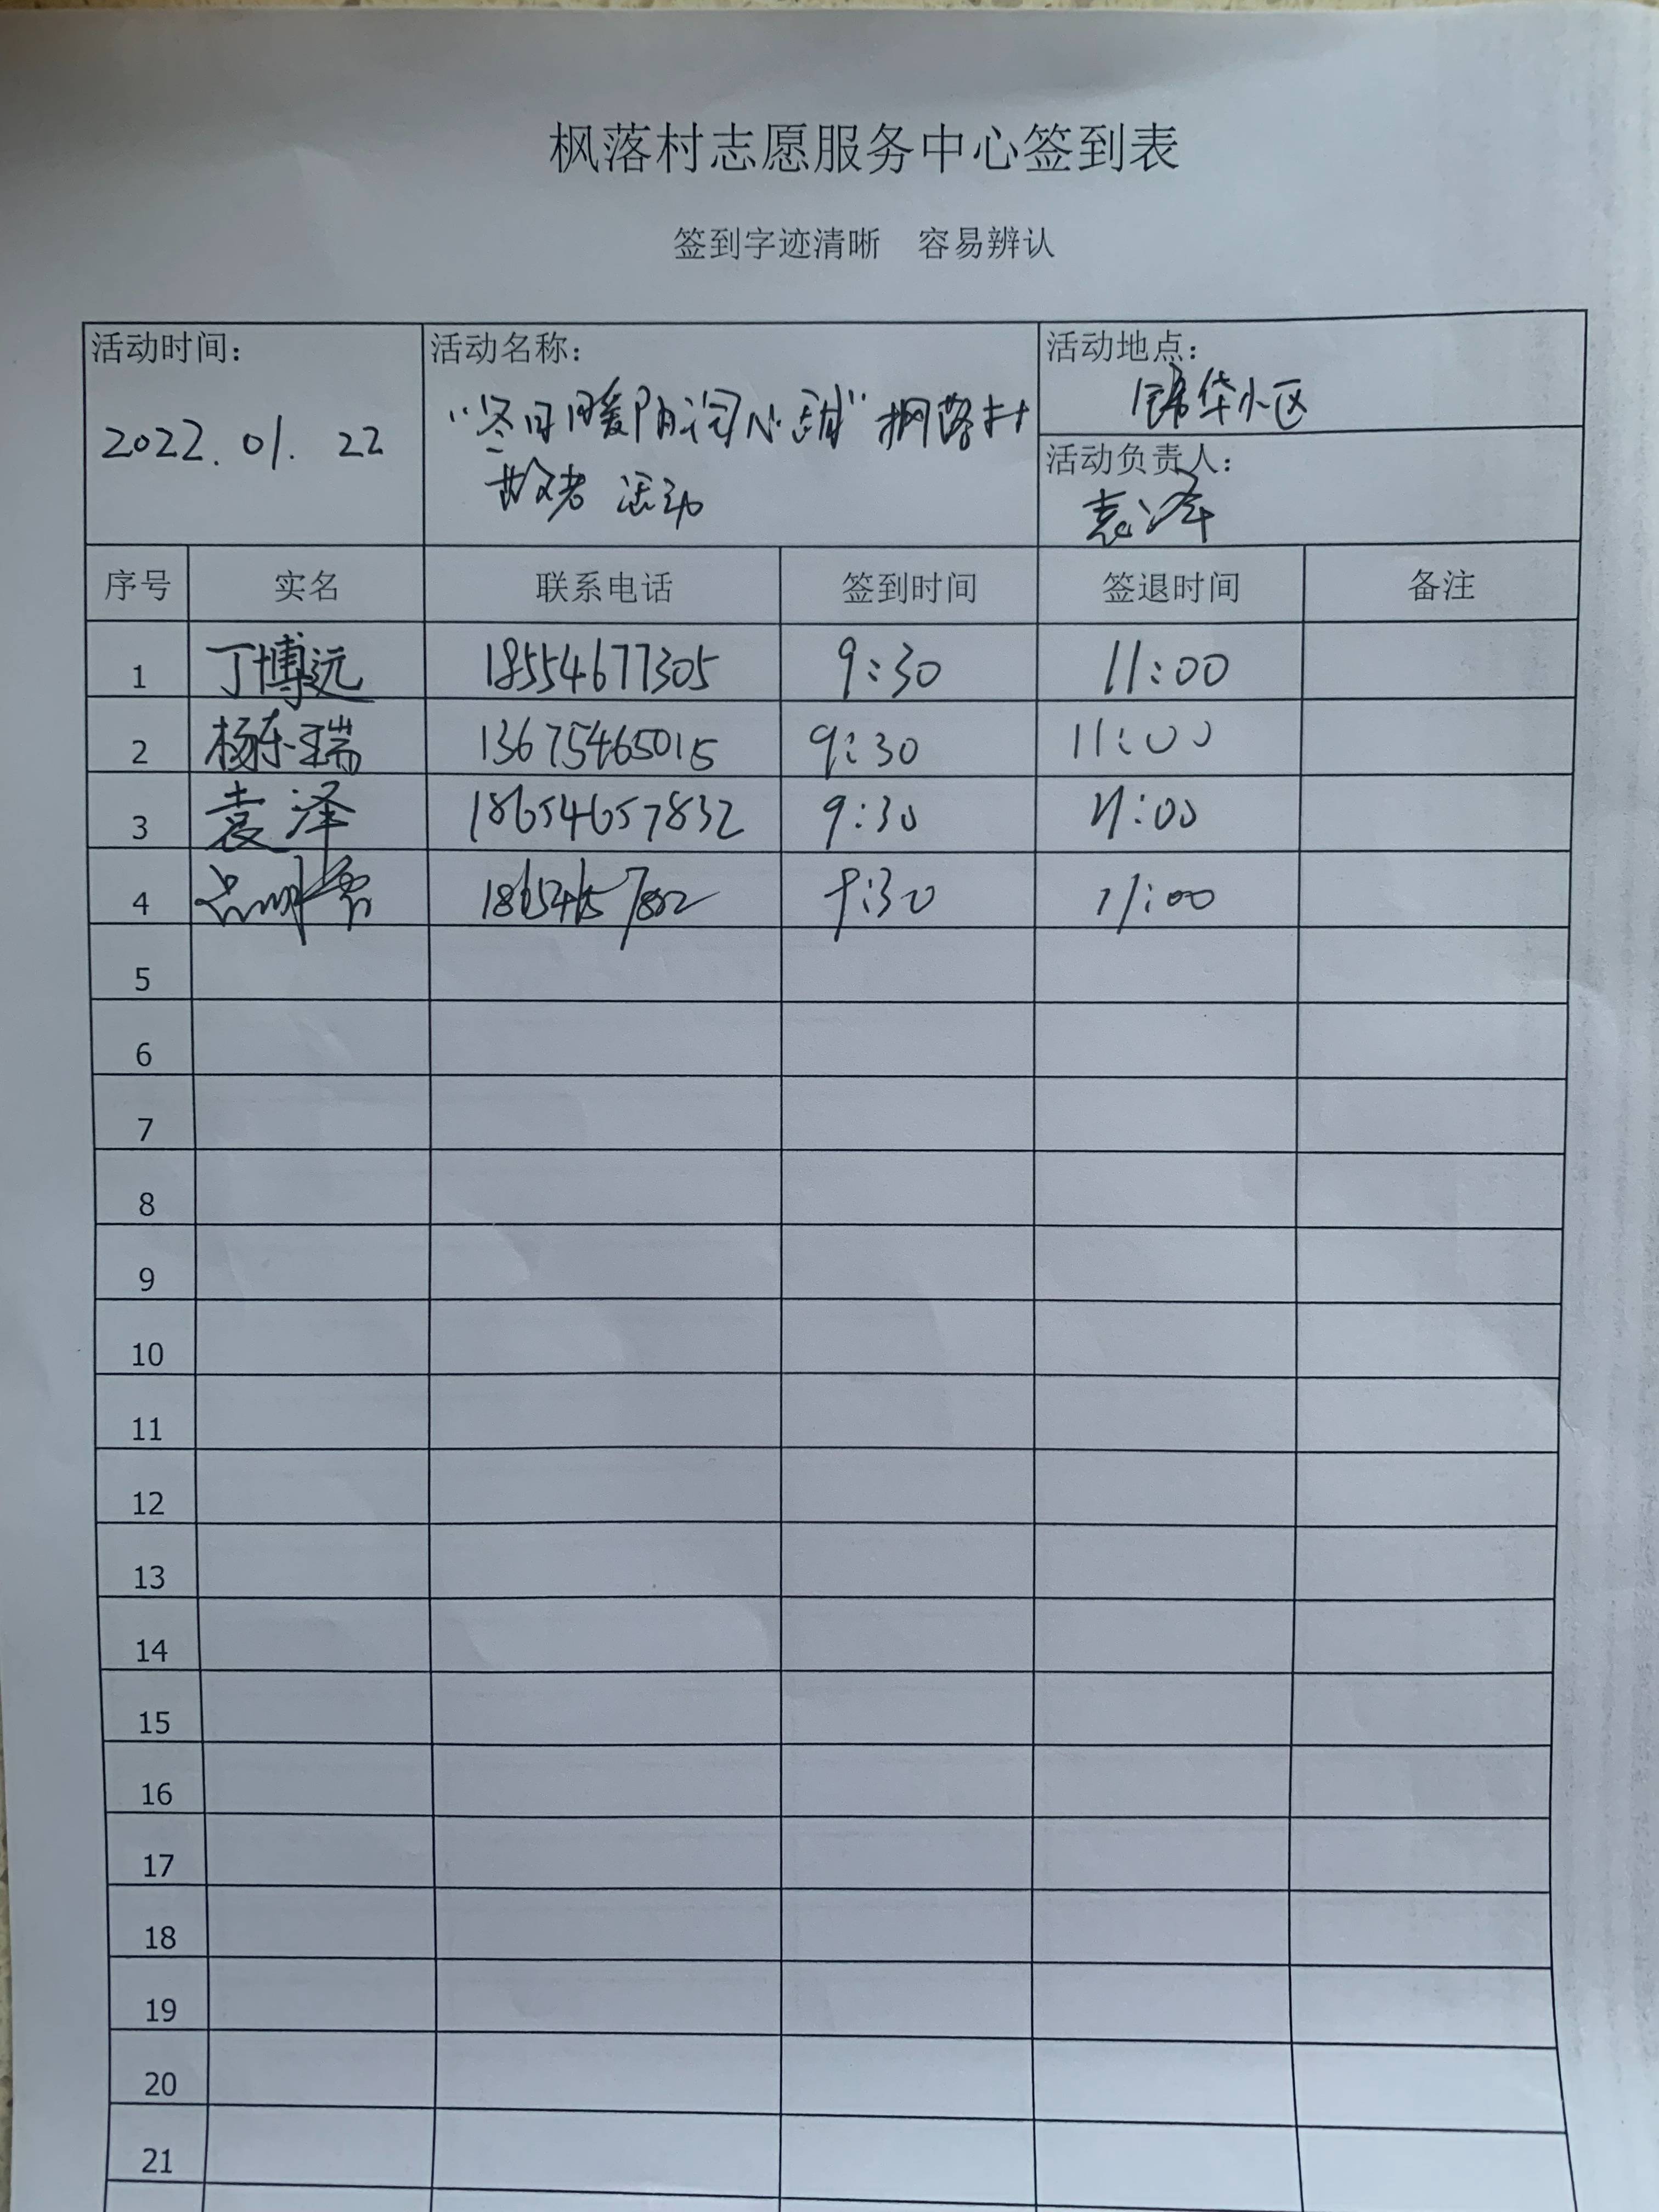 枫落村志愿服务中心签到表
签到字迹清晰 容易辨认
活动时间：
2022.01.22
活动名称：
“冬日暖阳润心甜”枫落村
敬老 活动
活动地点：
锦华小区
活动负责人：
袁泽
序号 实名 联系电话 签到时间 签退时间 备注
1 丁博远 18554677305 9:30 11:00
2 杨东瑞 13675465015 9:30 11:00
3 袁泽 18654657832 9:30 11:00
4 9:30 11:00
5
6
7
8
9
10
11
12
13
14
15
16
17
18
19
20
21